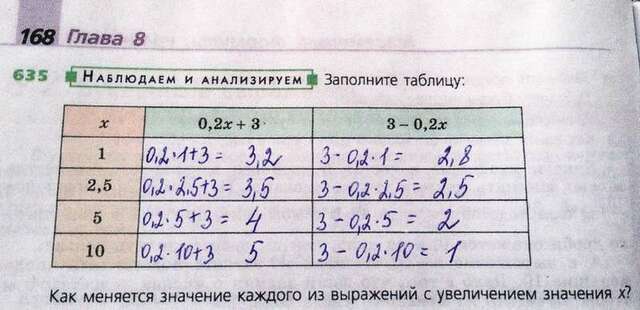 168 Глава 8
635 НАБЛЮДАЕМ И АНАЛИЗИРУЕМ Заполните таблицу:
x 0,2x + 3 3 – 0,2x
1 0,2·1+3= 3,2 3-0,2·1= 2,8
2,5 0,2·2,5+3= 3,5 3-0,2·2,5= 2,5
5 0,2·5+3= 4 3-0,2·5= 2
10 0,2·10+3 5 3-0,2·10= 1
Как меняется значение каждого из выражений с увеличением значения x?